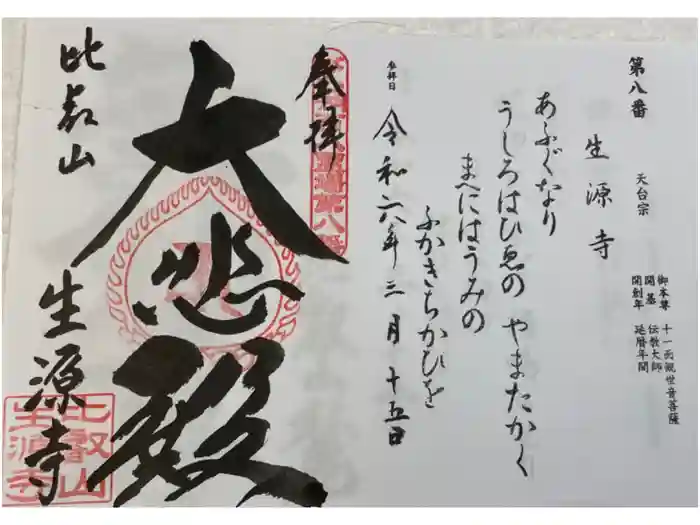 第八番
生源寺
天台宗
御本尊 十一面観世音菩薩
開基 伝教大師
開創年 延暦年間
あふぐなり
うしろはひゑの やまたかく
まへにはうみの
ふかきちかひを
参拝日 令和六年三月十五日
奉拝
大悲殿
比叡山
生源寺
比叡山
生源寺